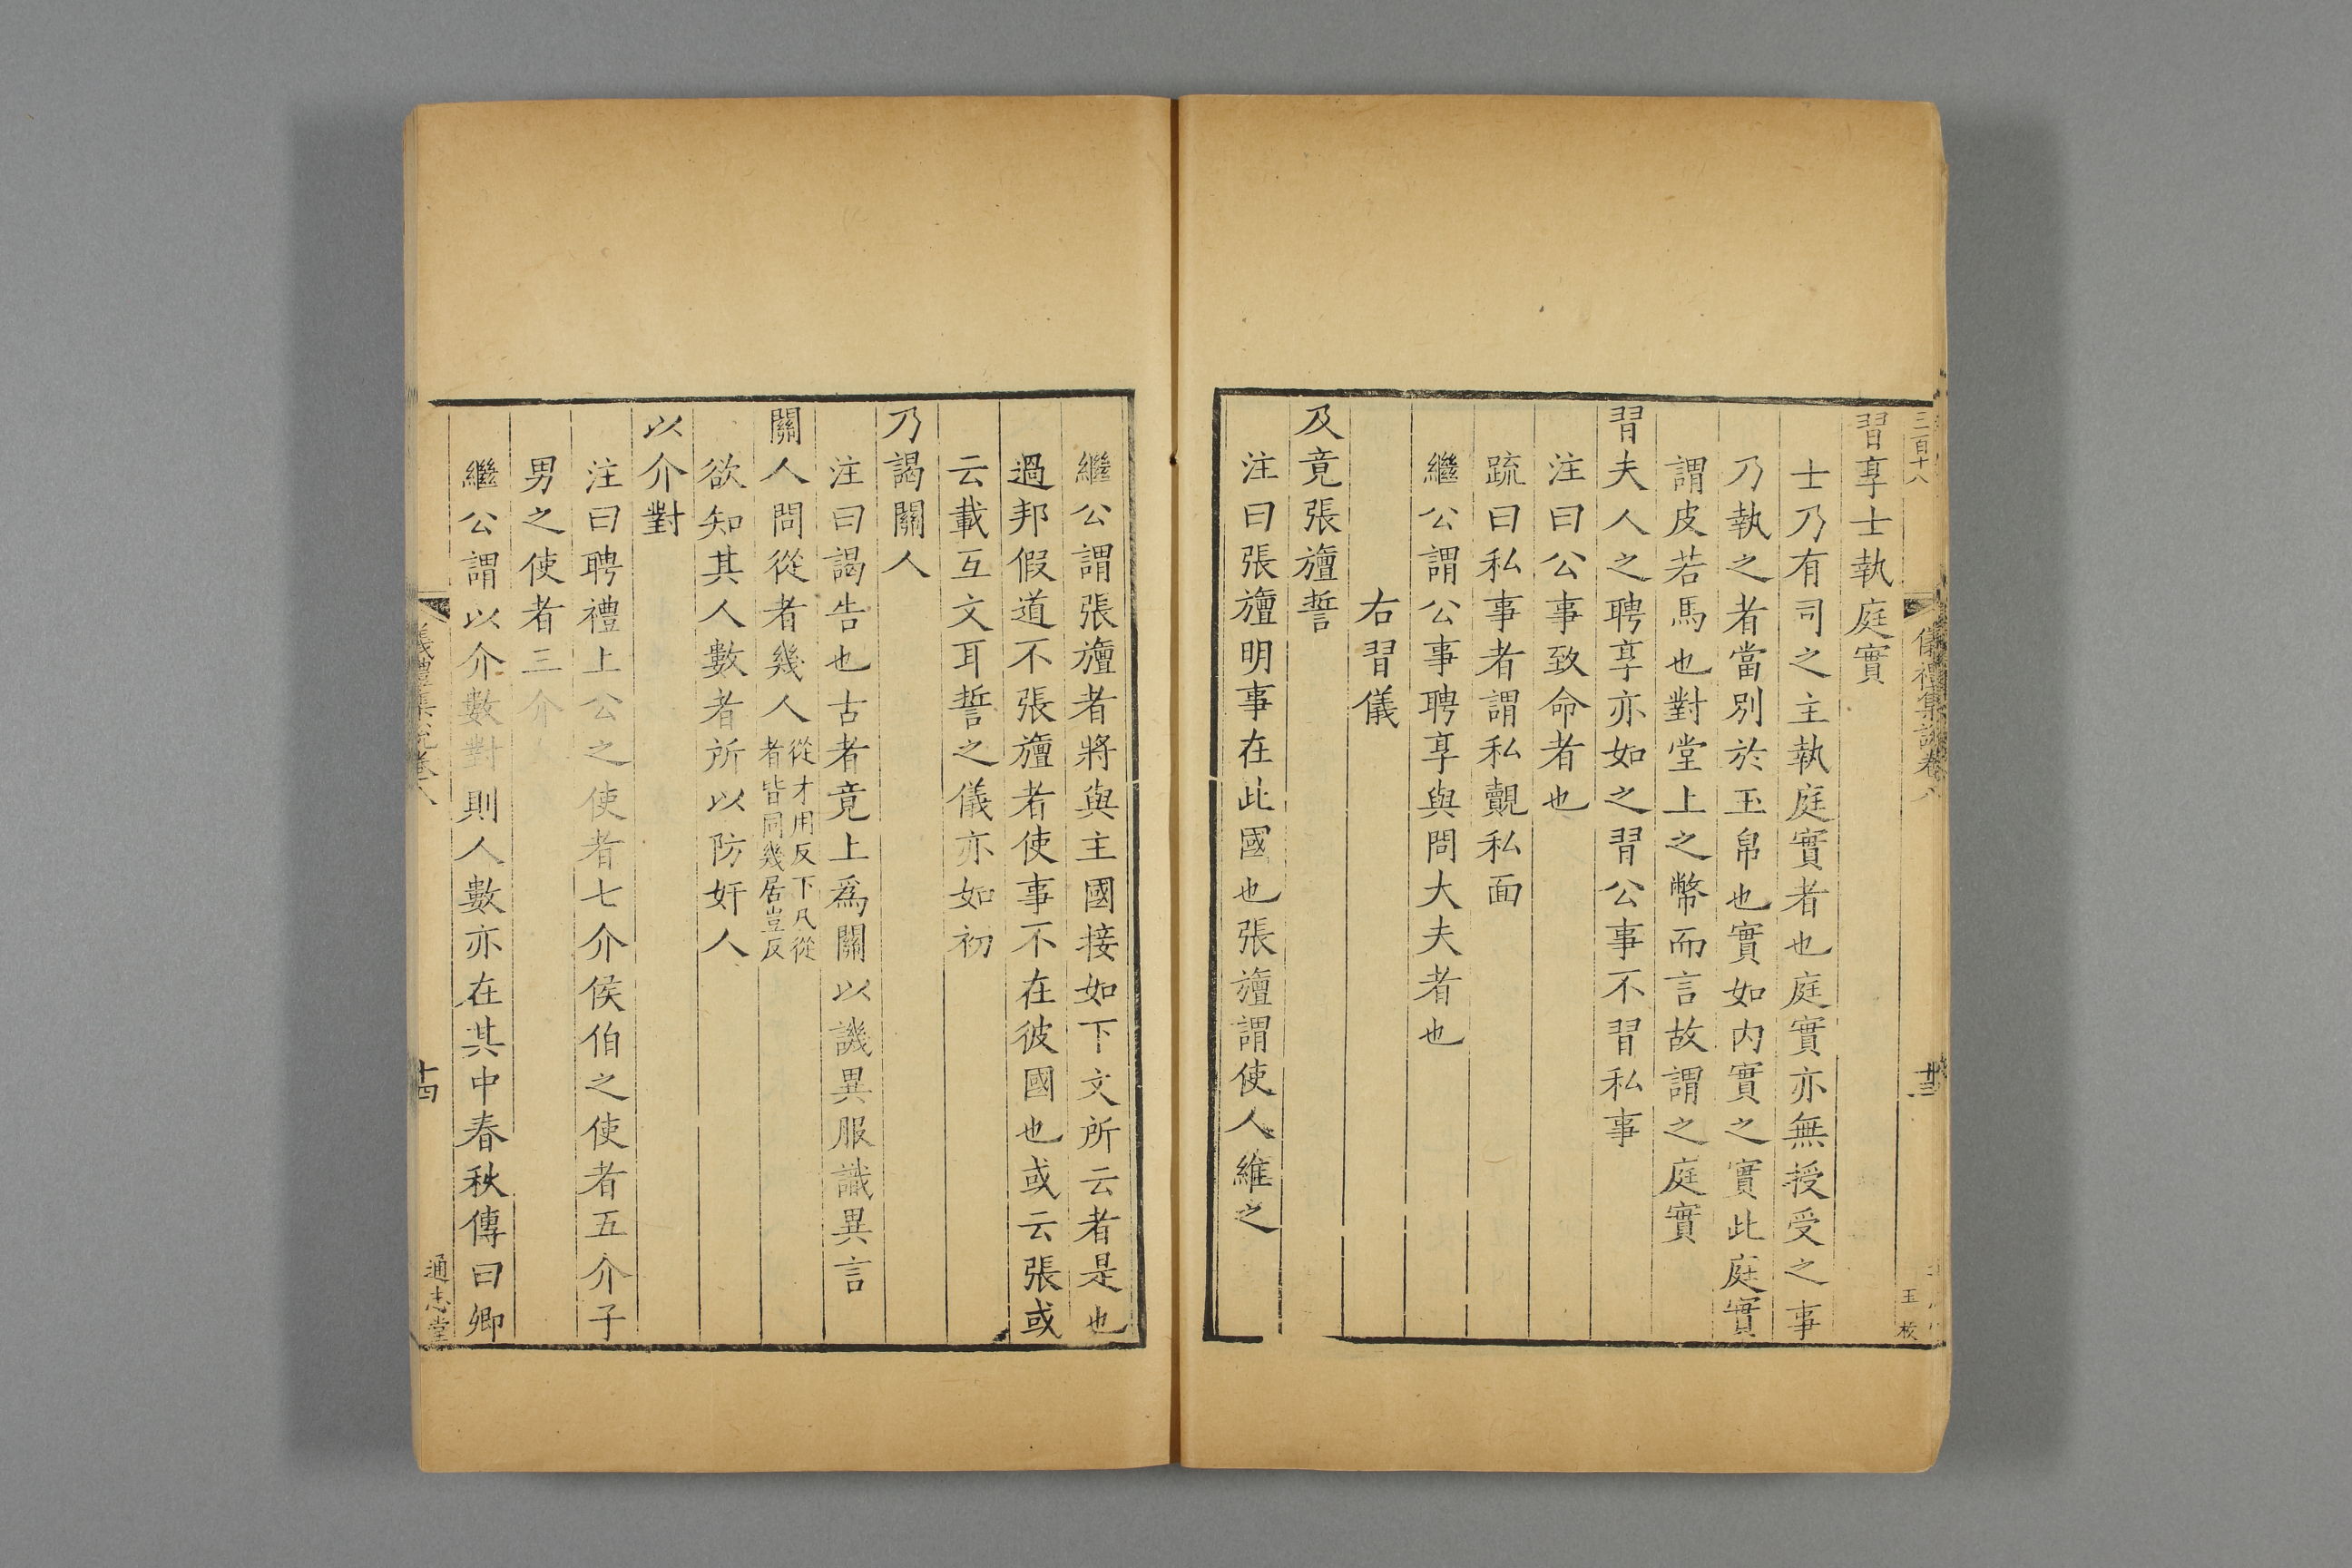 三百十八
儀禮集說卷八
十三
習享士執庭實
士乃有司之主執庭實者也庭實亦無授受之事
乃執之者當別於玉帛也實如内實之實此庭實
謂皮若馬也對堂上之幣而言故謂之庭實
習夫人之聘享亦如之習公事不習私事
注曰公事致命者也
疏曰私事者謂私覿私面
繼公謂公事聘享與問大夫者也
右習儀
及竟張旜誓
注曰張旜明事在此國也張旜謂使人維之
繼公謂張旜者將與主國接如下文所云者是也
過邦假道不張旜者使事不在彼國也或云張或
云載互文耳誓之儀亦如初
乃謁關人
注曰謁告也古者竟上爲關以譏異服識異言
關人問從者幾人從才用反下凡從者皆同幾居豈反
欲知其人數者所以防奸人
以介對
注曰聘禮上公之使者七介侯伯之使者五介子
男之使者三介
繼公謂以介數對則人數亦在其中春秋傳曰卿
儀禮集說卷八
十四
通志堂